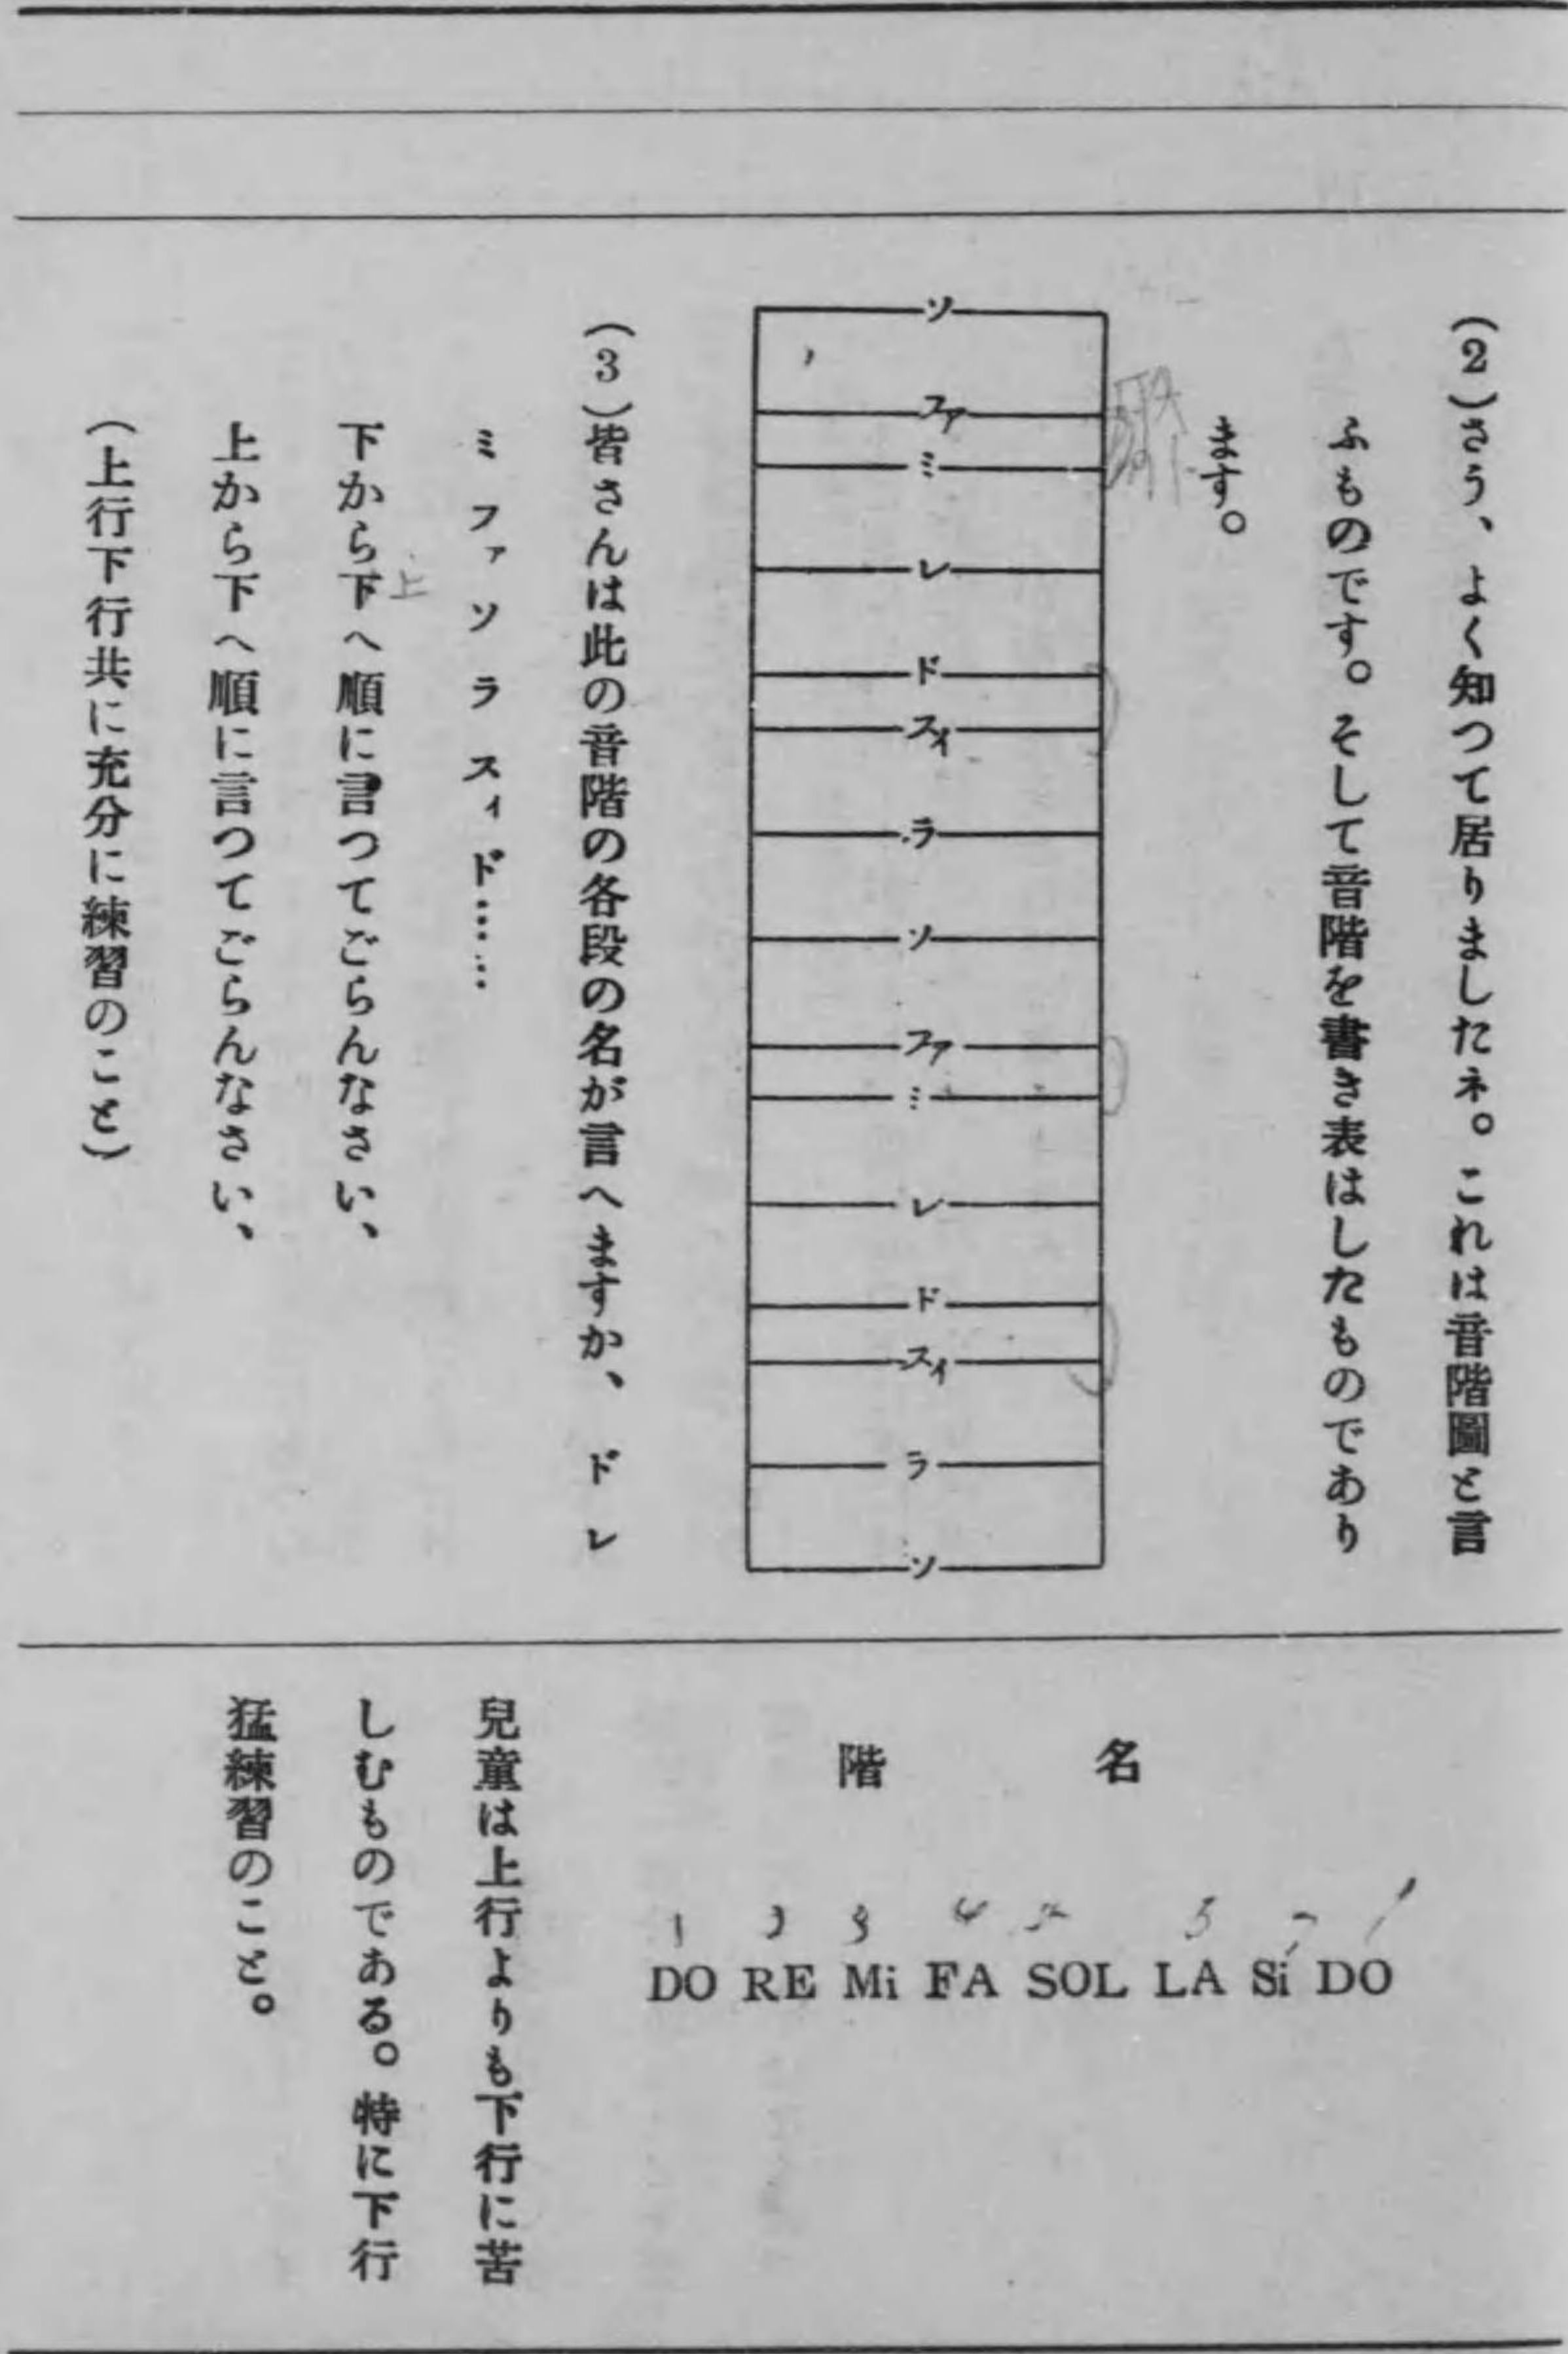 (2)さう、よく知つて居りましたネ。これは音階圖と言
ふものです。そして音階を書き表はしたものであり
ます。
ソ
ファ
ミ
レ
ド
スィ
ラ
ソ
ファ
ミ
レ
ド
スィ
ラ
ソ
(3)皆さんは此の音階の各段の名が言へますか、ドレ
ミファソラスィド……
下から下へ順に言つてごらんなさい、
上
上から下へ順に言つてごらんなさい、
(上行下行共に充分に練習のこと)
階名
1 2 3 4 5
DO RE Mi FA SOL LA Si DO
兒童は上行よりも下行に苦
しむものである。特に下行
猛練習のこと。